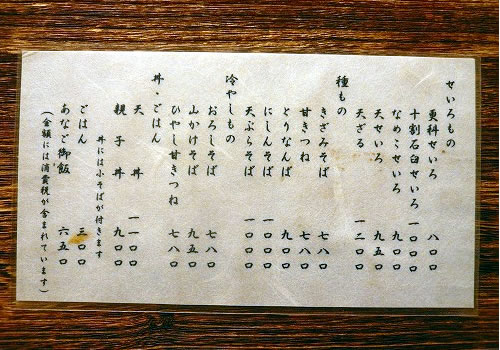 せいろもの
更科せいろ 八〇〇
十割石臼せいろ 一〇〇〇
なめこせいろ 九〇〇
天せいろ 九五〇
天ざる 一二〇〇
種もの
きざみそば 七八〇
甘きつね 七八〇
とりなんば 九〇〇
にしんそば 一〇〇〇
天ぷらそば 一〇〇〇
冷やしもの
おろしそば 七八〇
山かけそば 九五〇
ひやし甘きつね 七八〇
丼・ごはん
天丼 一一〇〇
親子丼 九〇〇
丼には小そばが付きます
ごはん 三〇〇
あなご御飯 六五〇
(金額には消費税が含まれています)